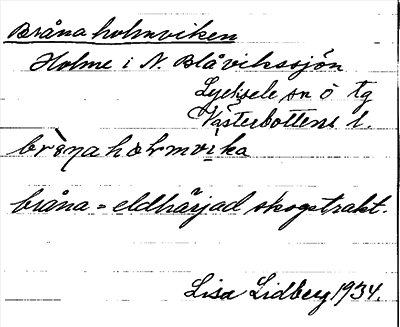 Bråna holmviken
Holme i N. Blåvikssjön
Lycksele sn ö tg
Västerbottens l.
bråna = eldhärjad skogstrakt.
Lisa Lidberg 1934.